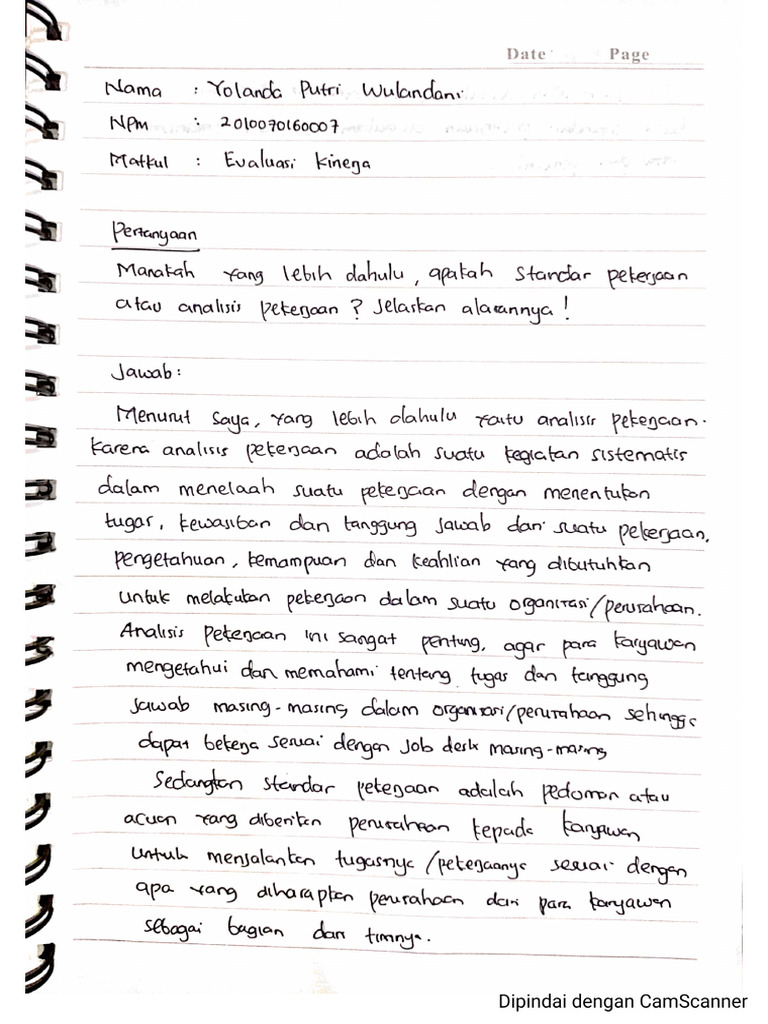 Date Page
Nama : Yolanda Putri Wulandani
NPM : 2010070160007
Matkul : Evaluasi Kinerja
Pertanyaan
Manakah yang lebih dahulu, apakah standar pekerjaan
atau analisis pekerjaan ? Jelaskan alasannya !
Jawab :
Menurut saya, yang lebih dahulu yaitu analisis pekerjaan.
Karena analisis pekerjaan adalah suatu kegiatan sistematis
dalam menelaah suatu pekerjaan dengan menentukan
tugas, kewajiban dan tanggung jawab dari suatu pekerjaan,
pengetahuan, kemampuan dan keahlian yang dibutuhkan
untuk melakukan pekerjaan dalam suatu organisasi/perusahaan.
Analisis pekerjaan ini sangat penting, agar para karyawan
mengetahui dan memahami tentang tugas dan tanggung
jawab masing-masing dalam organisasi/perusahaan sehingga
dapat bekerja sesuai dengan job desk masing-masing
Sedangkan standar pekerjaan adalah pedoman atau
acuan yang diberikan perusahaan kepada karyawan
untuk menjalankan tugasnya/pekerjaanya sesuai dengan
apa yang diharapkan perusahaan dari para karyawan
sebagai bagian dari timnya.
Dipindai dengan CamScanner